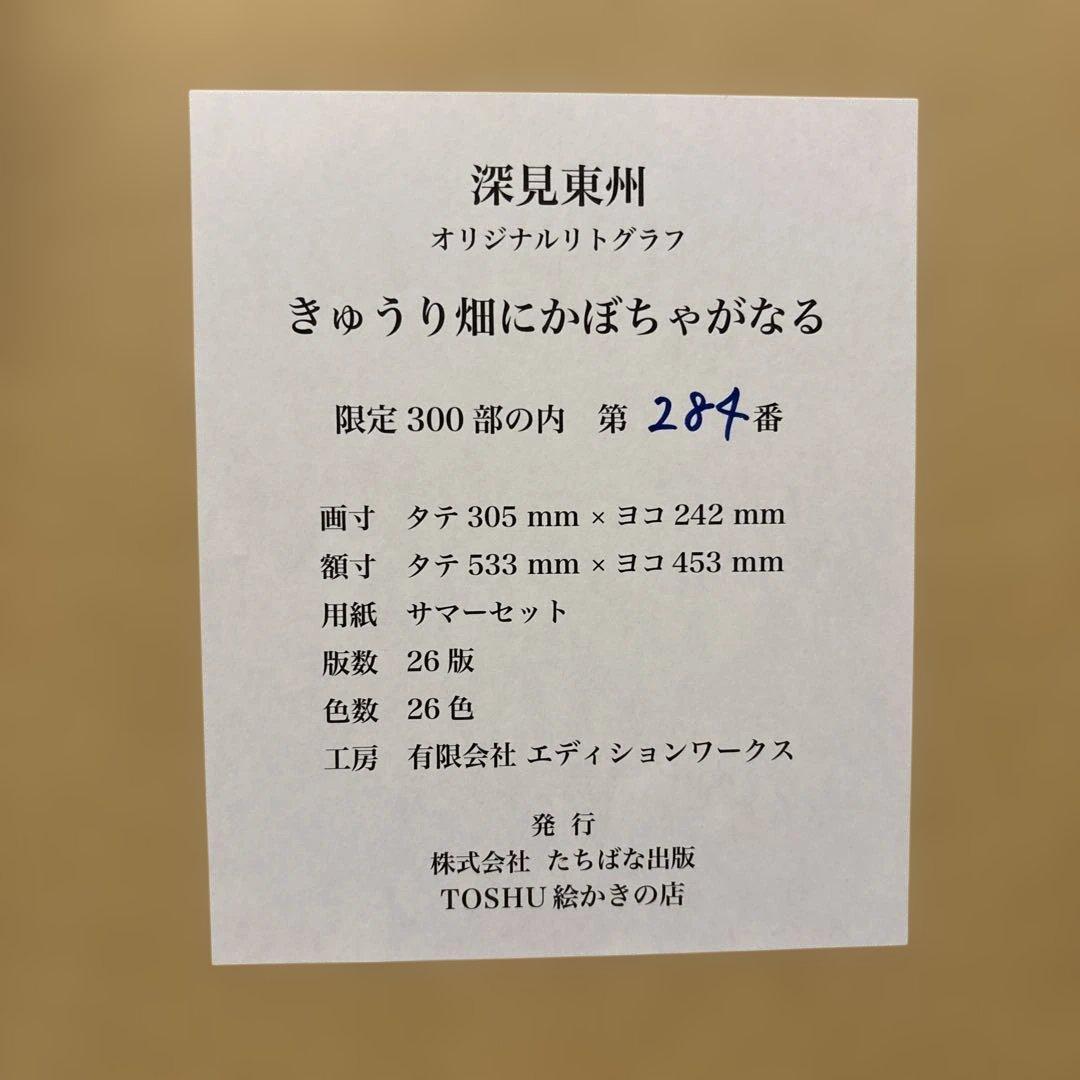 深見東州
オリジナルリトグラフ
きゅうり畑にかぼちゃがなる
限定 300 部の内 第 284 番
画寸 タテ 305 mm × ヨコ 242 mm
額寸 タテ 533 mm × ヨコ 453 mm
用紙 サマーセット
版数 26 版
色数 26 色
工房 有限会社 エディションワークス
発 行
株式会社 たちばな出版
TOSHU 絵かきの店